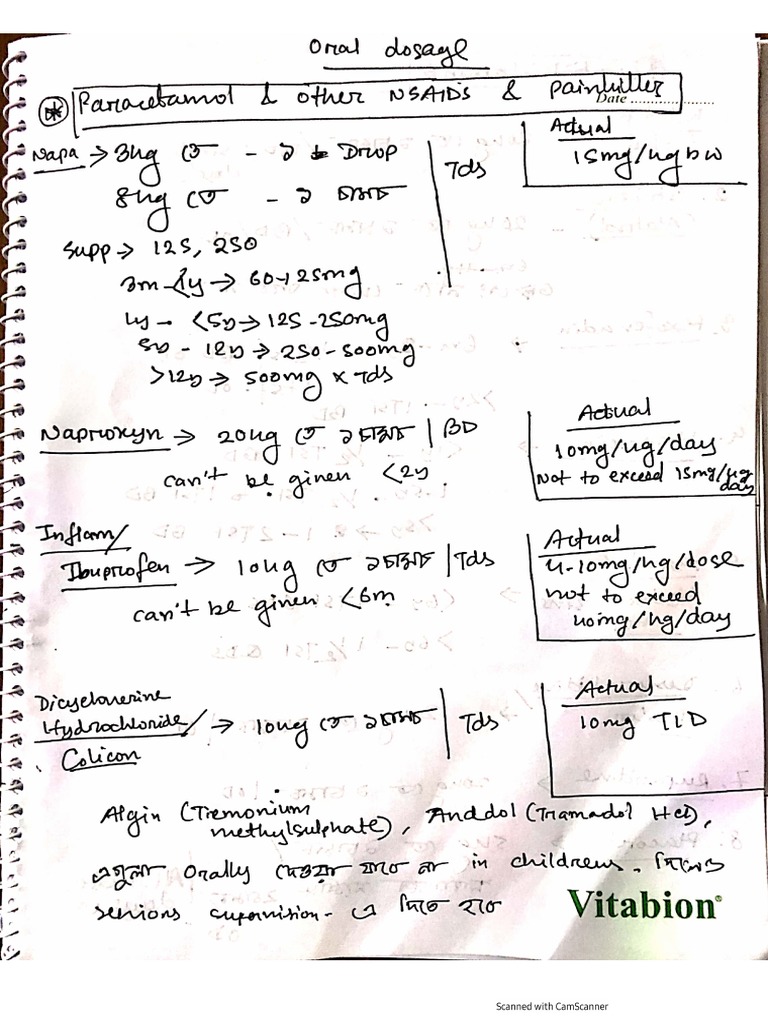 Oral dosage
Paracetamol & other NSAIDS & Painkiller
Date ....................
Napa → 3kg তে - ১ Drop | Tds
8kg তে - ১ চামচ
Actual
15mg/kg bw
Supp → 125, 250
3m - <1y → 60-125mg
1y - <5y → 125 - 250mg
5y - 12y → 250 - 500mg
>12y → 500mg x Tds
Naproxyn → 20kg তে ১ চামচ | BD
can't be given <2y
Actual
10mg/kg/day
Not to exceed 15mg/kg
day
Inflam/
Ibuprofen → 10kg তে ১ চামচ | Tds
can't be given <6m
Actual
4-10mg/kg/dose
not to exceed
40mg/kg/day
Dicycloverine
Hydrochloride/ → 10kg তে ১ চামচ | Tds
Colicon
Actual
10mg TID
Algin (Tremonium
methylsulphate), Anddol (Tramadol Hcl),
এগুলা Orally দেওয়া যাবে না in childrens. দিলেও
seniors supervision- এ দিতে হবে
Vitabion®
Scanned with CamScanner